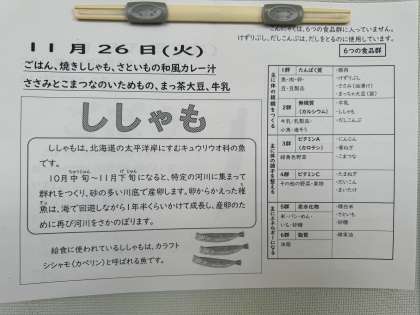 こんにゃくは、６つの食品群に入っていません。
けずりぶし、だしこんぶは、だしをとるのに使用しています。
６つの食品群
１１月２６日（火）
ごはん、焼きししゃも、さといもの和風カレー汁
ささみとこまつなのいためもの、まっ茶大豆、牛乳
ししゃも
ししゃもは、北海道の太平洋岸にすむキュウリウオ科の魚
です。
１０月中旬～１１月下旬になると、特定の河川に集まって
群れをつくり、砂の多い川底で産卵します。卵からかえった稚
魚は、海で回遊しながら１年半くらいかけて成長し、産卵のた
めに再び河川をさかのぼります。
給食に使われているししゃもは、カラフト
シシャモ（カペリン）と呼ばれる魚です。
主に体の組織をつくる
１群 たんぱく質
魚・肉・卵・
豆・豆製品
・豚肉
・けずりぶし
・ささみ（油漬け）
・まっちゃ大豆（袋）
２群 無機質
（カルシウム）
牛乳・乳製品・
小魚・海そう
・牛乳
・ししゃも
・だしこんぶ
主に体の調子を整える
３群 ビタミンＡ
（カロテン）
緑黄色野菜
・にんじん
・葉ねぎ
・こまつな
４群 ビタミンＣ
その他の野菜・果物
・たまねぎ
・だいこん
・まいたけ
主にエネルギーになる
５群 炭水化物
米・パン・めん・
いも・砂糖
・精白米
・さといも
・砂糖
６群 脂質
油脂
・綿実油